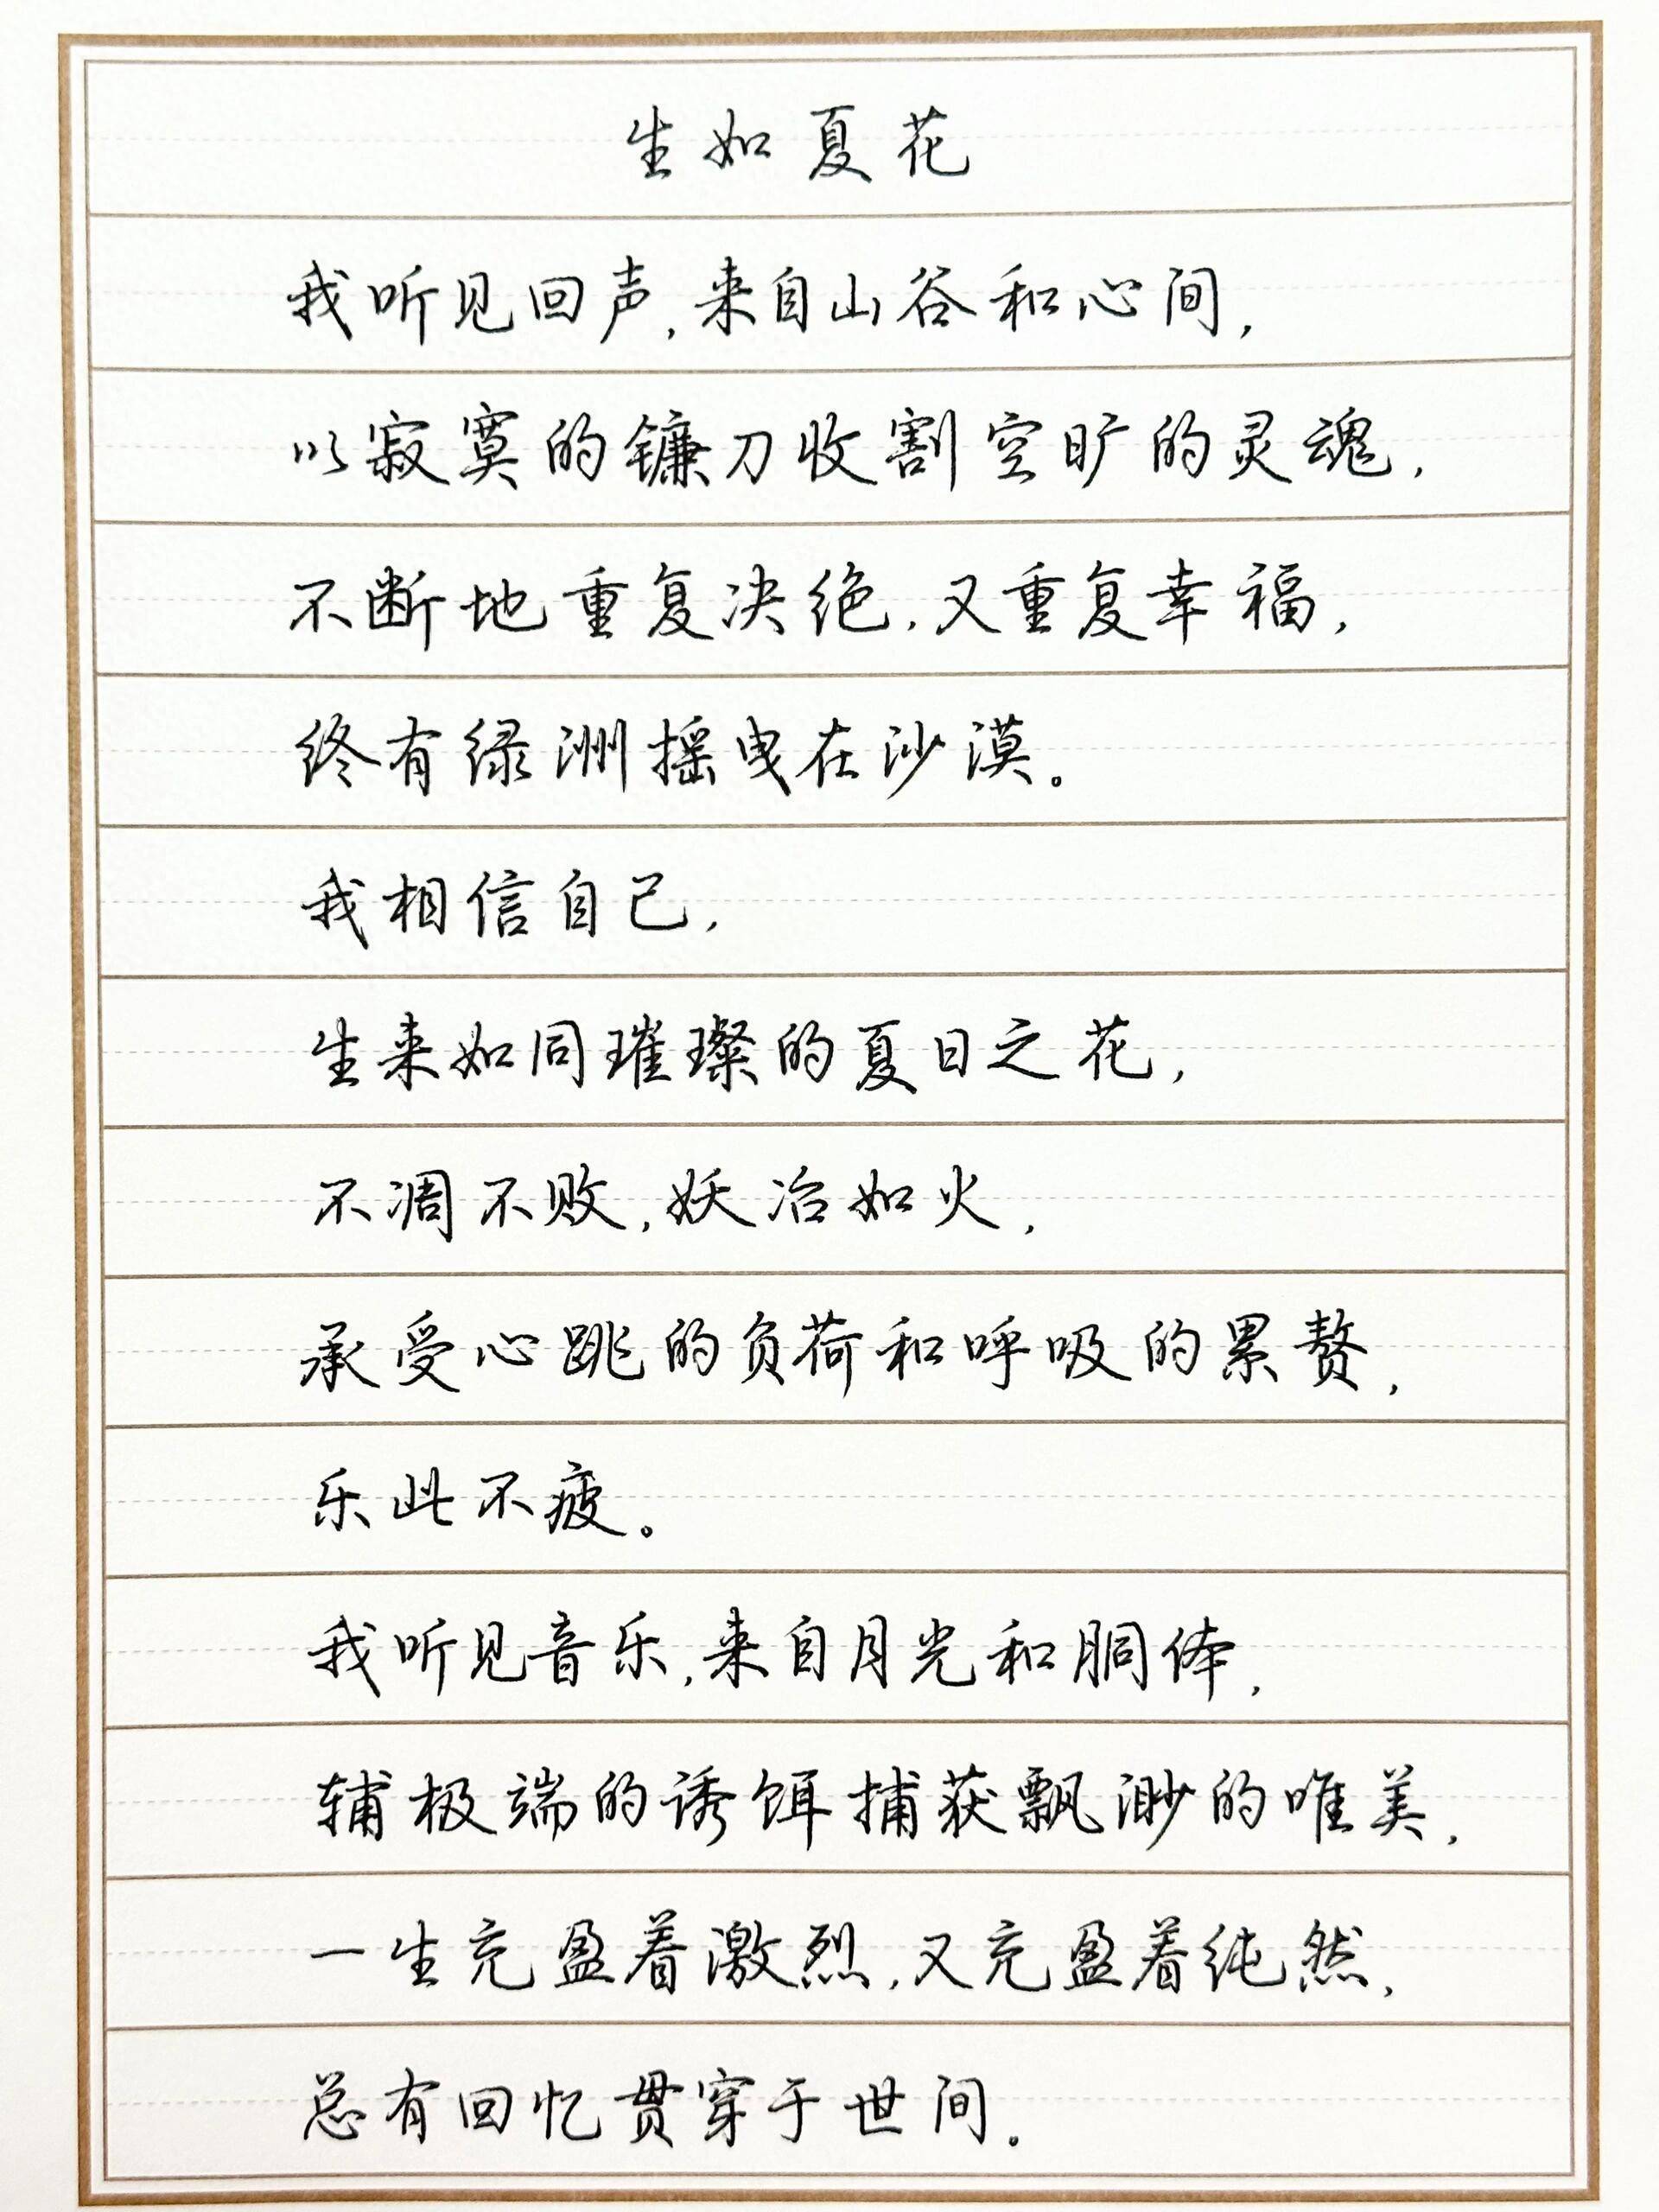 生如夏花
我听见回声,来自山谷和心间,
以寂寞的镰刀收割空旷的灵魂,
不断地重复决绝,又重复幸福,
终有绿洲摇曳在沙漠。
我相信自己,
生来如同璀璨的夏日之花,
不凋不败,妖冶如火,
承受心跳的负荷和呼吸的累赘,
乐此不疲。
我听见音乐,来自月光和胴体,
辅极端的诱饵捕获飘渺的唯美,
一生充盈着激烈,又充盈着纯然,
总有回忆贯穿于世间。